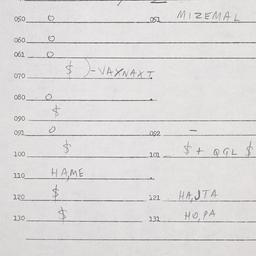 050 O 051 MIZEMAL
060 O
061 O
070 $ )-VAXNAXI
080 O
090 $
091 O 092 –
100 $ 101 $ + QGL $
110 HA,ME
120 $ 121 HA,JTA
130 $ 131 HO,PA